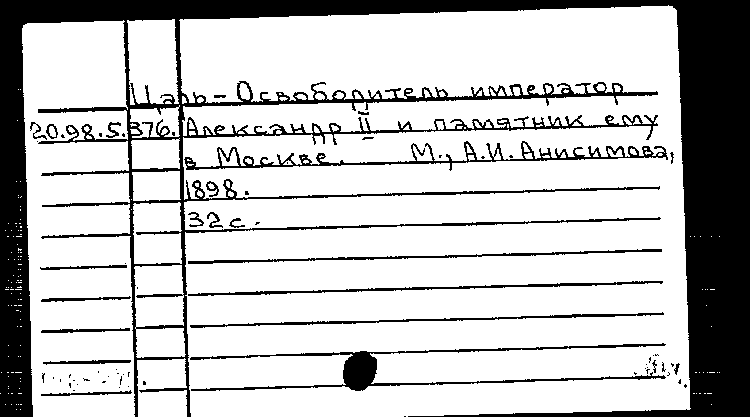 Царь-Освободитель император
20.98.5.376. Александр II и памятник ему
в Москве. М., А.И. Анисимова,
1898.
32 с.